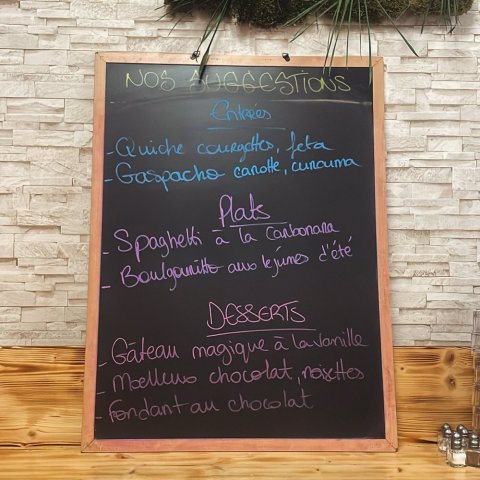 NOS SUGGESTIONS
Entrées
- Quiche courgettes, feta
- Gaspacho carotte, curcuma
Plats
- Spaghetti à la Carbonara
- Boulgourisotto aux légumes d'été
DESSERTS
- Gâteau magique à la vanille
- Moelleux chocolat, noisettes
- Fondant au chocolat